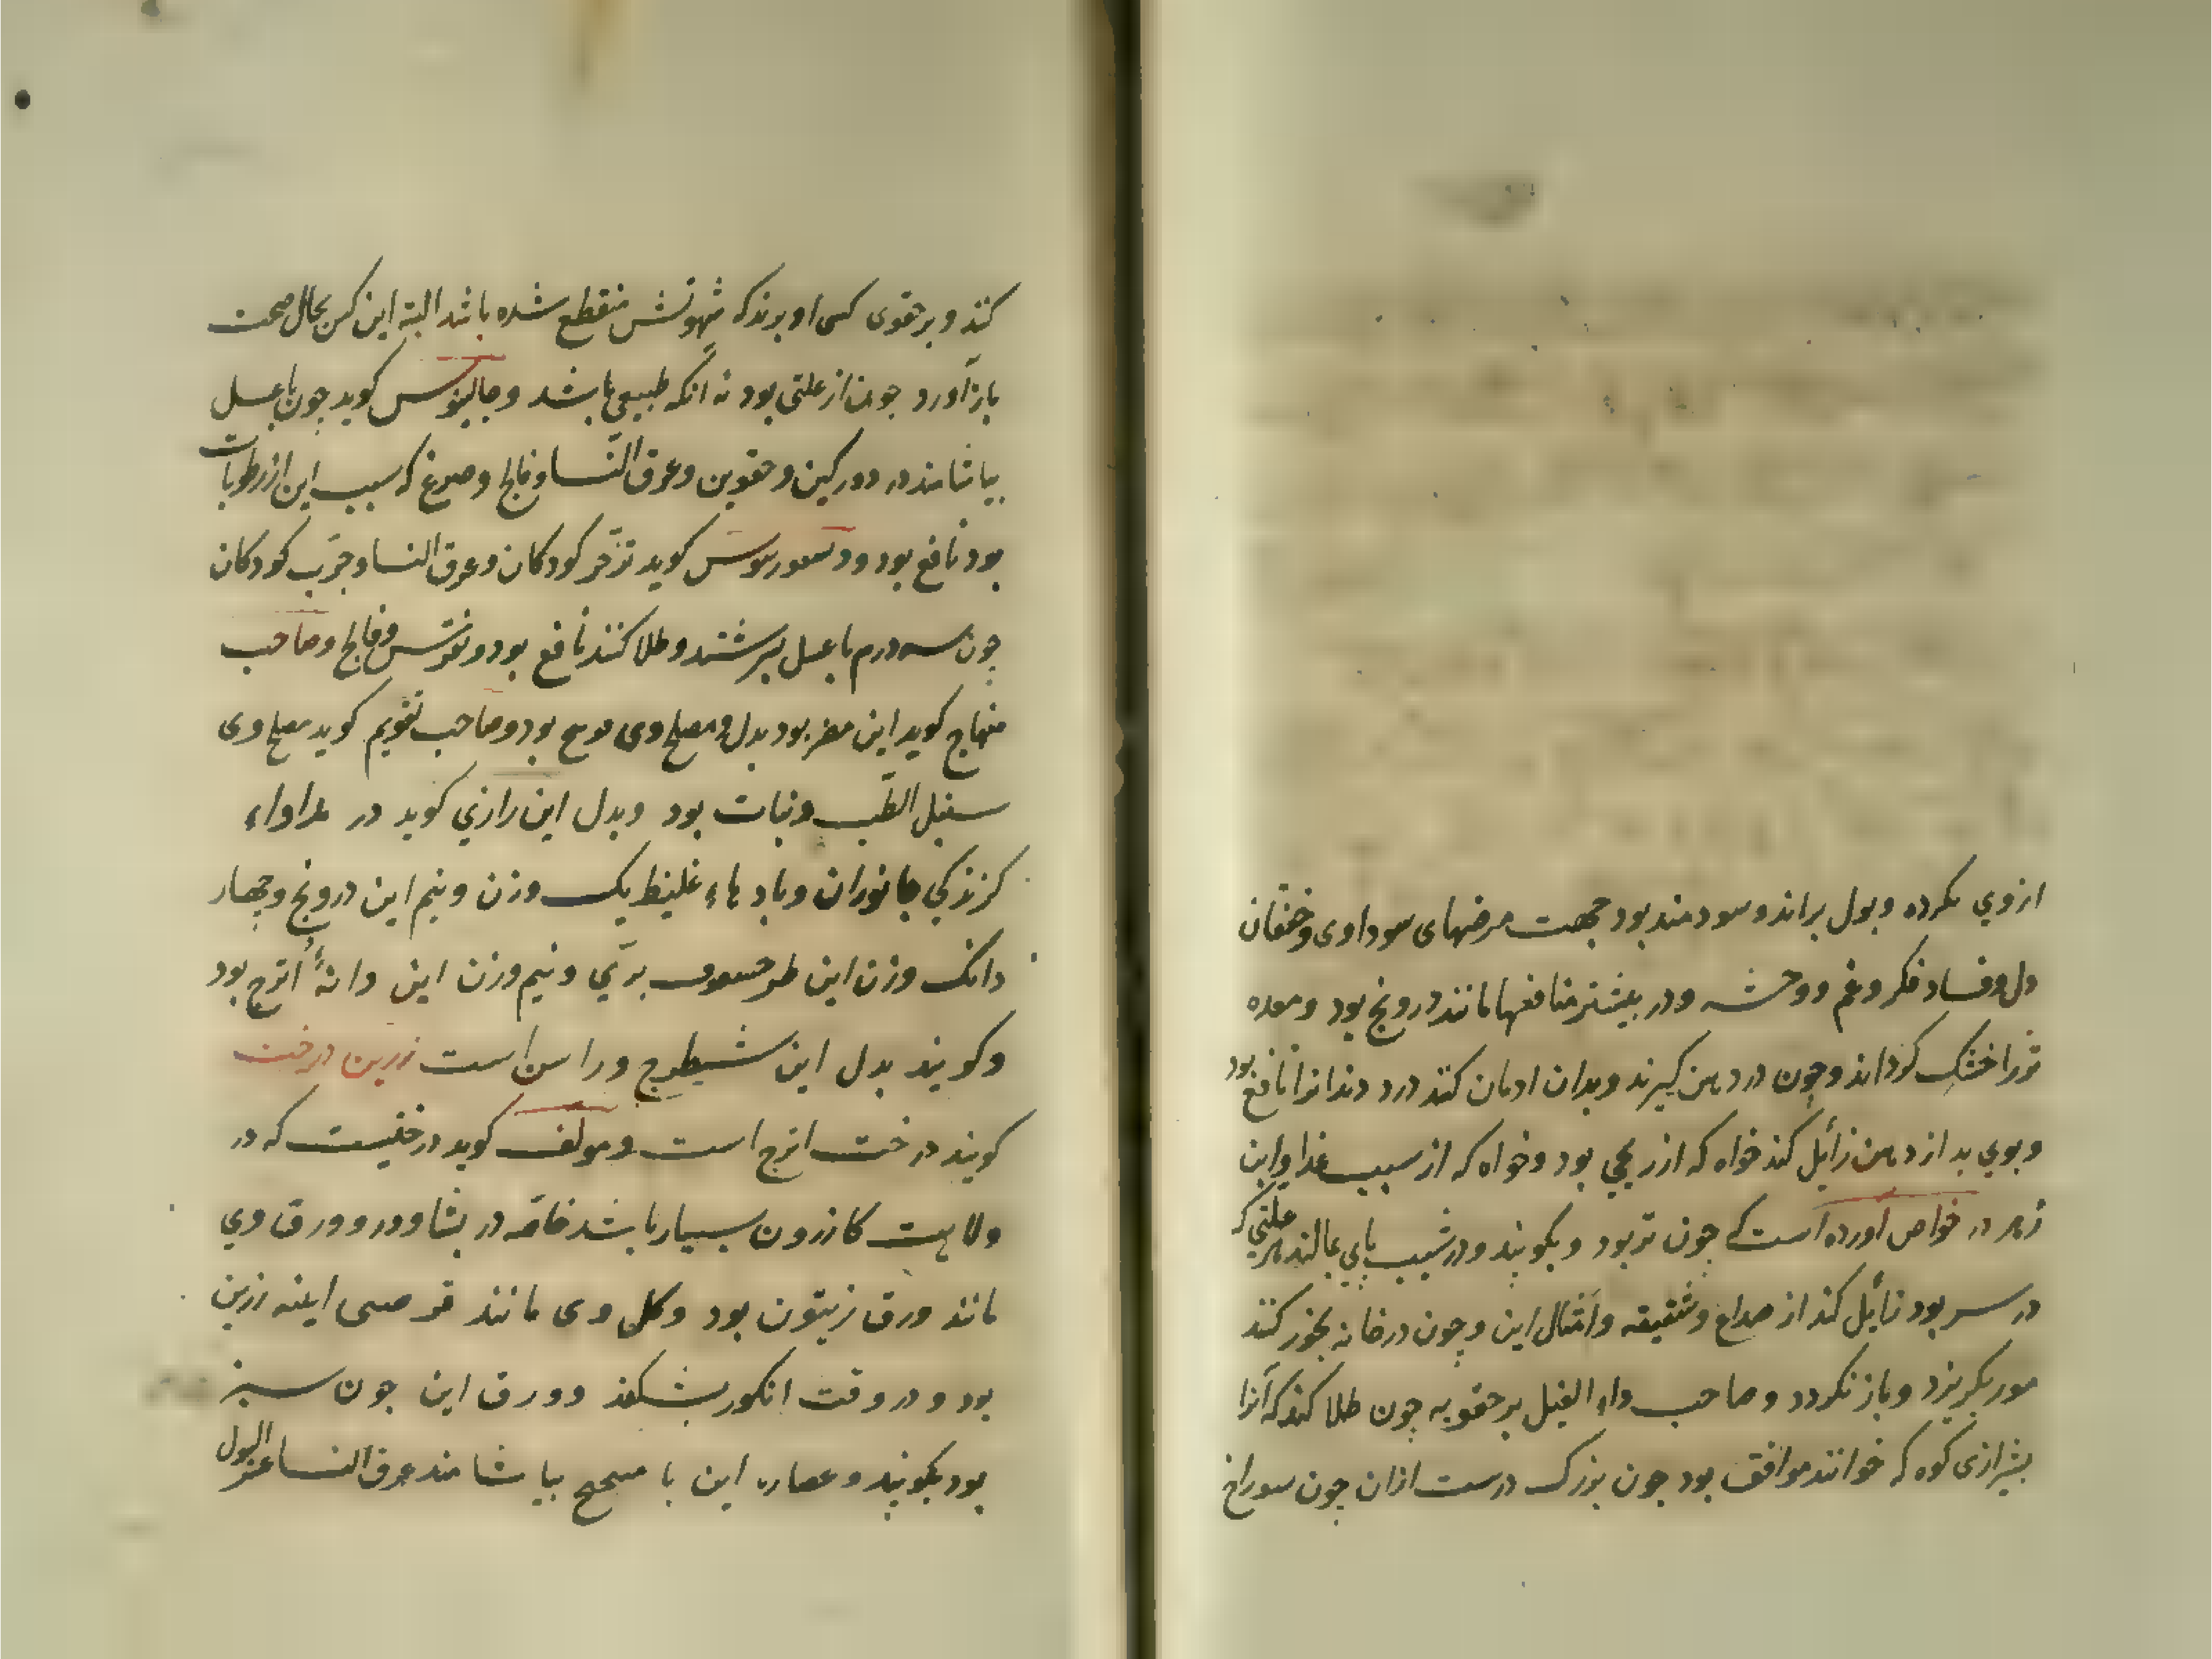 ازوي مكرده وبول براند وسودمند بود جهت مرضهای سوداوی وخفقان
دل وفساد فكر وغم ووحشه ودر بیشتر منافعها مانند درونج بود ومعده
تررا خشك كرداند وجون در دهن كیرند وبدان ادمان كنند درد دندانرا نافع بود
وبوي بد از دهن زائل كند خواه كه از بود وخواه كه از سبب غذا وابن
زهر در خواص اورده است كه جون تر بود وبكوبند ودر شیب پاي بمالند هر علتي كه
در سر بود زائل كند از صداع وشقیقه وامثال این وچون درخانه بخور كنند
مور بكریزد وباز نكردد وصاحب داء الفیل بر حقو به چون طلا كند كه آنرا
بشیرازی كوه كه خوانند موافق بود جون بزرك درست ازان چون سوراخ
كنند وبر حقوی كسی اوبرند كه شهوتش منقطع شده باشد البته این كس بحال صحت
بازآورد جون از علتی بود نه انكه طبیعي باشد وجالینوس كوید چون باعسل
بیاشامند در دوركین وحقوین وعرق النسا وفالج وصرع كه سبب این از رطوبات
بود نافع بود ودیسقوریدوس كوید كودكان وعرق النسا وجرب كودكان
چون سه درم باعسل بسرشند وطلا كنند نافع بود ونقرس وفالج وصاحب
منهاج كوید این مضر بود بدل ومصلح وی بود وصاحب تقویم كوید مصلح وی
سنبل الطیب ونبات بود وبدل این رازي كوید در مداواء
كزندكي جانوران وبادهاء غلیظ یك وزن ونیم این درونج وچهار
دانك وزن این بری ونیم وزن این دانۀ اترج بود
وكویند بدل این شیطرج وراسن است زرین درخت
كویند درخت اترج است ومولف كوید درختیست كه در
ولایت كازرون بسیار باشد خاصه در بشاوور وورق وي
مانند ورق زیتون بود وكل وی مانند قرصی اینه زرین
بود ودر وقت انكور بشكفد وورق این جون سبز
بود بكوبند وعصاره این با بیاشامند عرق النسا عسر البول